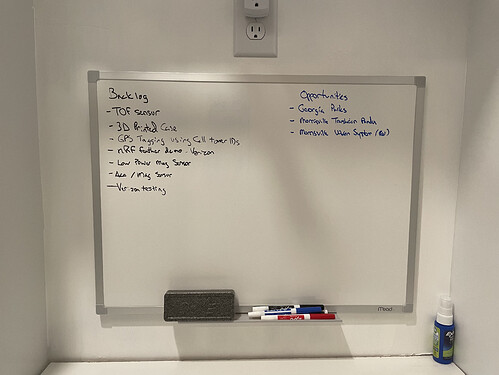 Backlog
- TOF sensor
- 3D Printed Case
- GPS Tagging using Cell tower IDs
- nRF feather demo - Verizon
- Low Power Mag Sensor
- Acc / Mag Sensor
- Verizon testing
Opportunities
- Georgia Parks
- Morrisville
- Morrisville
Mead
EXPO